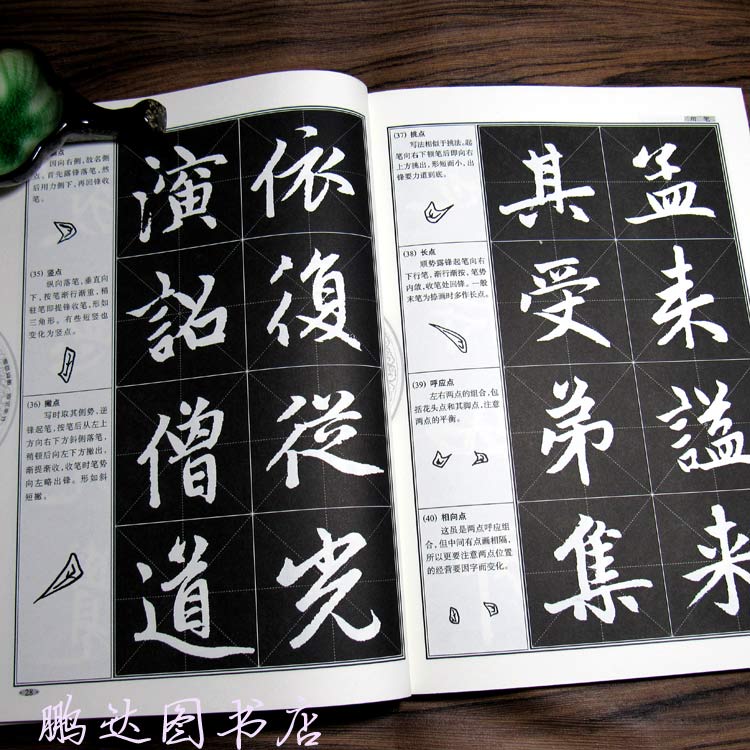 因向右侧,故名侧
点。首先露锋落笔,然
后用力侧下,再回锋收
笔。
(35) 竖点
纵向落笔、垂直向
下,按笔渐行渐重,稍
驻笔即提锋收笔,形如
三角形。有些短竖也
变化为竖点。
(36) 撇点
写时取其侧势,逆
锋起笔,按笔后从左上
方向右下方斜侧落笔,
稍顿后向左下方撇出,
渐提渐收,收笔时笔势
向左略出锋。形如斜
短撇。
演 依
詔 復
僧 從
道 光
28
用 笔
(37) 挑点
写法相似于挑法,起
笔向右下顿笔后即向右
上方挑出,形短而小,出
锋要力道到底。
(38) 长点
顺势露锋起笔向右
下行笔,渐行渐按,笔势
内敛,收笔处回锋。一般
末笔为捺画时多作长点。
(39) 呼应点
左右两点的组合,包
括花头点和其脚点,注意
两点的平衡。
(40) 相向点
这虽是两点呼应组
合,但中间有点画相隔,
所以更要注意两点位置
的经营要因字而变化。
其 孟
受 来
弟 謚
集 来
鹏达图书店